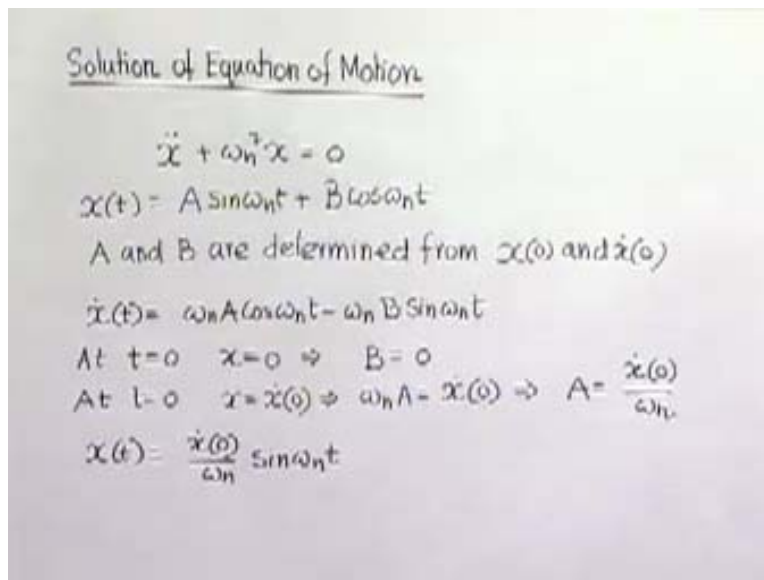 Solution of Equation of Motion
ẍ + ωn²x = 0
x(t) = A sinωnt + B cosωnt
A and B are determined from x(0) and ẋ(0)
ẋ(t) = ωn A Cosωnt - ωn B Sinωnt
At t=0 x=0 ⇒ B = 0
At t=0 ẋ = ẋ(0) ⇒ ωnA = ẋ(0) ⇒ A = ẋ(0)/ωn
x(t) = ẋ(0)/ωn sinωnt